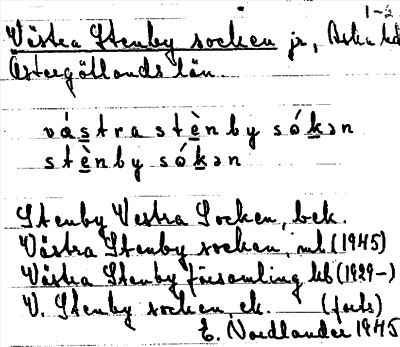 1-2
Västra Stenby socken jr, Aska hd
Östergötlands län.
västra stènby sókən
stènby sókən
Stenby Westra Socken, bek.
Västra Stenby socken, ml (1945)
Västra Stenby församling kb (1929-)
V. Stenby socken, ek. (forts)
E. Nordlander 1945